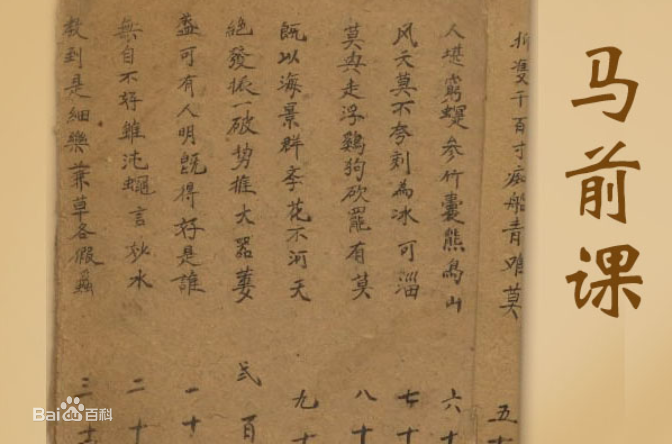 马前课
折变千百寸底船青雖莫
五十
人堪窮蟶参竹囊熊為山
六十
风天莫不夸刻為冰可淄
七十
莫典走浮鷄狗砍罷有莫
八十
既以海景群李花不河天
九十
絕發振一破势推大器蔞
弍百
盖可有人明既得好是誰
一十
無自不好雖沌蠅言秋水
二十
教到是細樂葉草各假蟲
三十
Bai百科